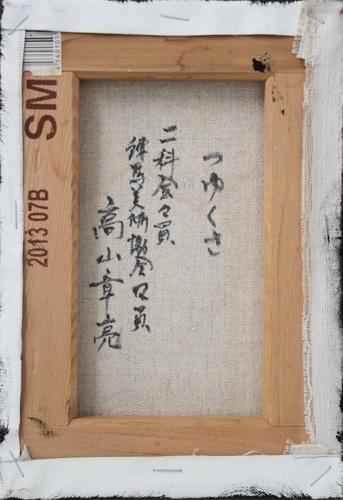 つゆくさ
二科会々員
練馬美術協会々員
高山章亮
SM
2013 07B